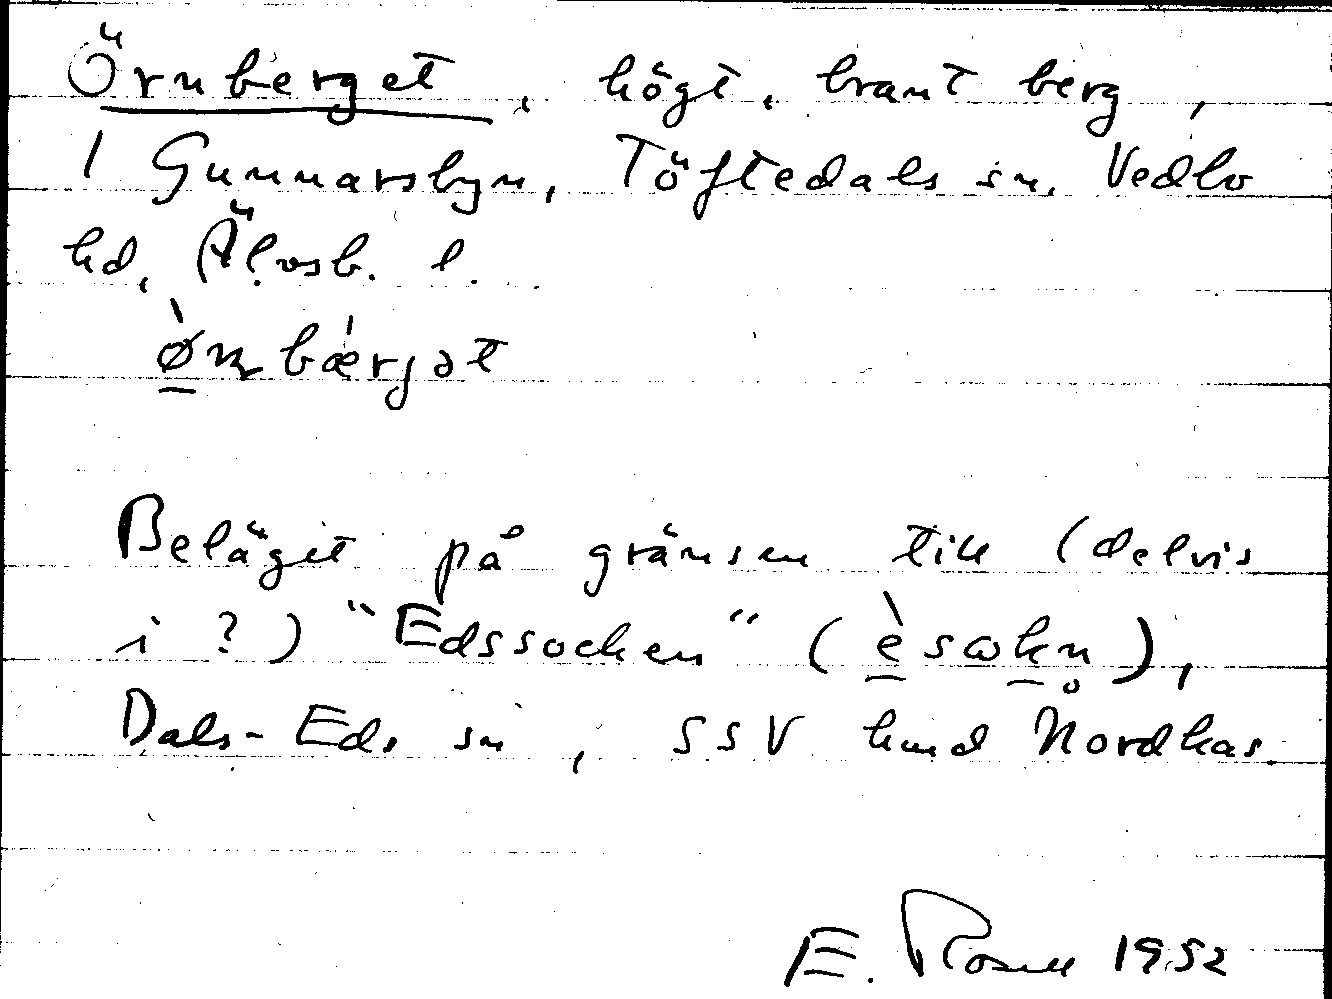 Örnberget, högt, brant berg,
i Gunnarsbyn, Töftedals sn, Vedbo
hd, Älvsb. l.
ø̀ɳbæ̀rjət
Beläget på gränsen till (delvis
i?) "Edssocken" (èsωkn̥),
Dals-Eds sn, SSV
E. Rosell 1952